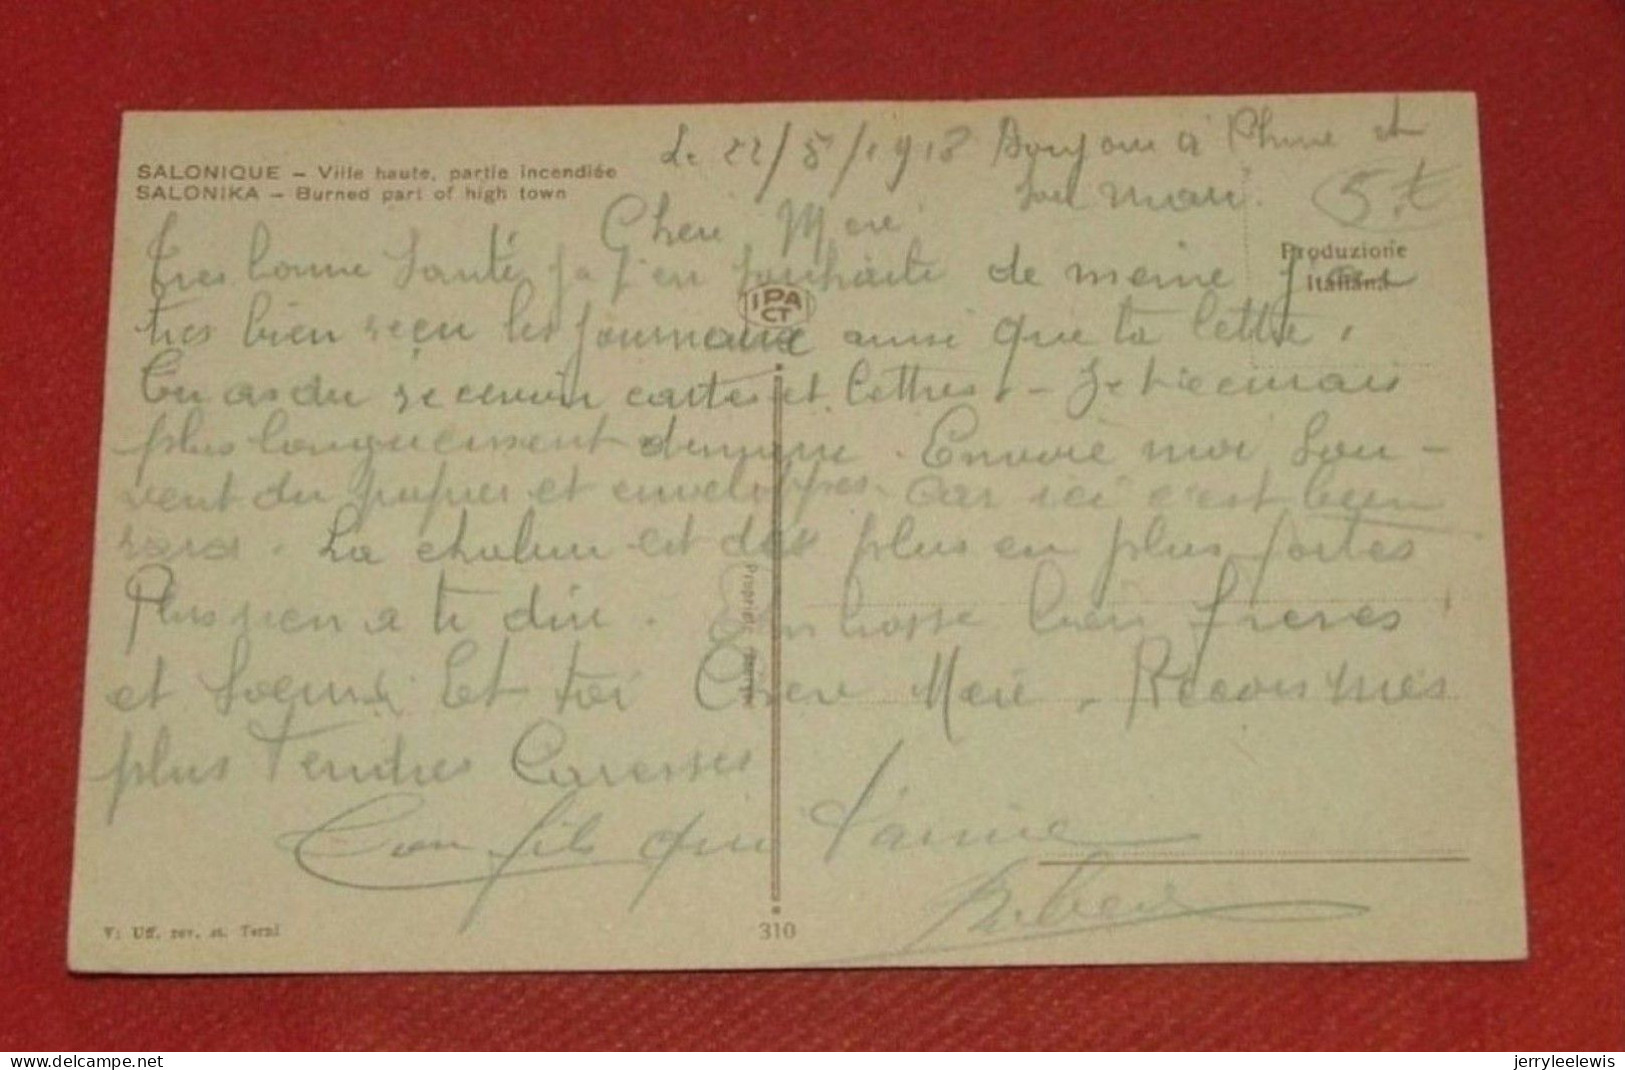 SALONIQUE – Ville haute, partie incendiée
SALONIKA – Burned part of high town
Le 22/5/1918 Bonjour à et
son mari.
5.t
Produzione
Italiana
Cheri Mere
Tres bonne Santé j'en souhaite de meme Jai
IPA
CT
tres bien reçu les journaux ainsi que ta lettre.
Tu as du recevoir cartes et lettres. – Je t'ecrirais
plus longuement dimque. Envoie moi Sou –
vent du papier et enveloppes. Car ici c'est bien
rare. La chaleur est des plus en plus fortes
Plus rien a te dire. Embrasse bien freres
et Soeurs Et toi Chere Mere. Recois mes
plus Tendres Caresses
Ton fils qui t'aime
Proprietà
V: Uff. rev. st. Terni
310
www.delcampe.net
jerryleelewis